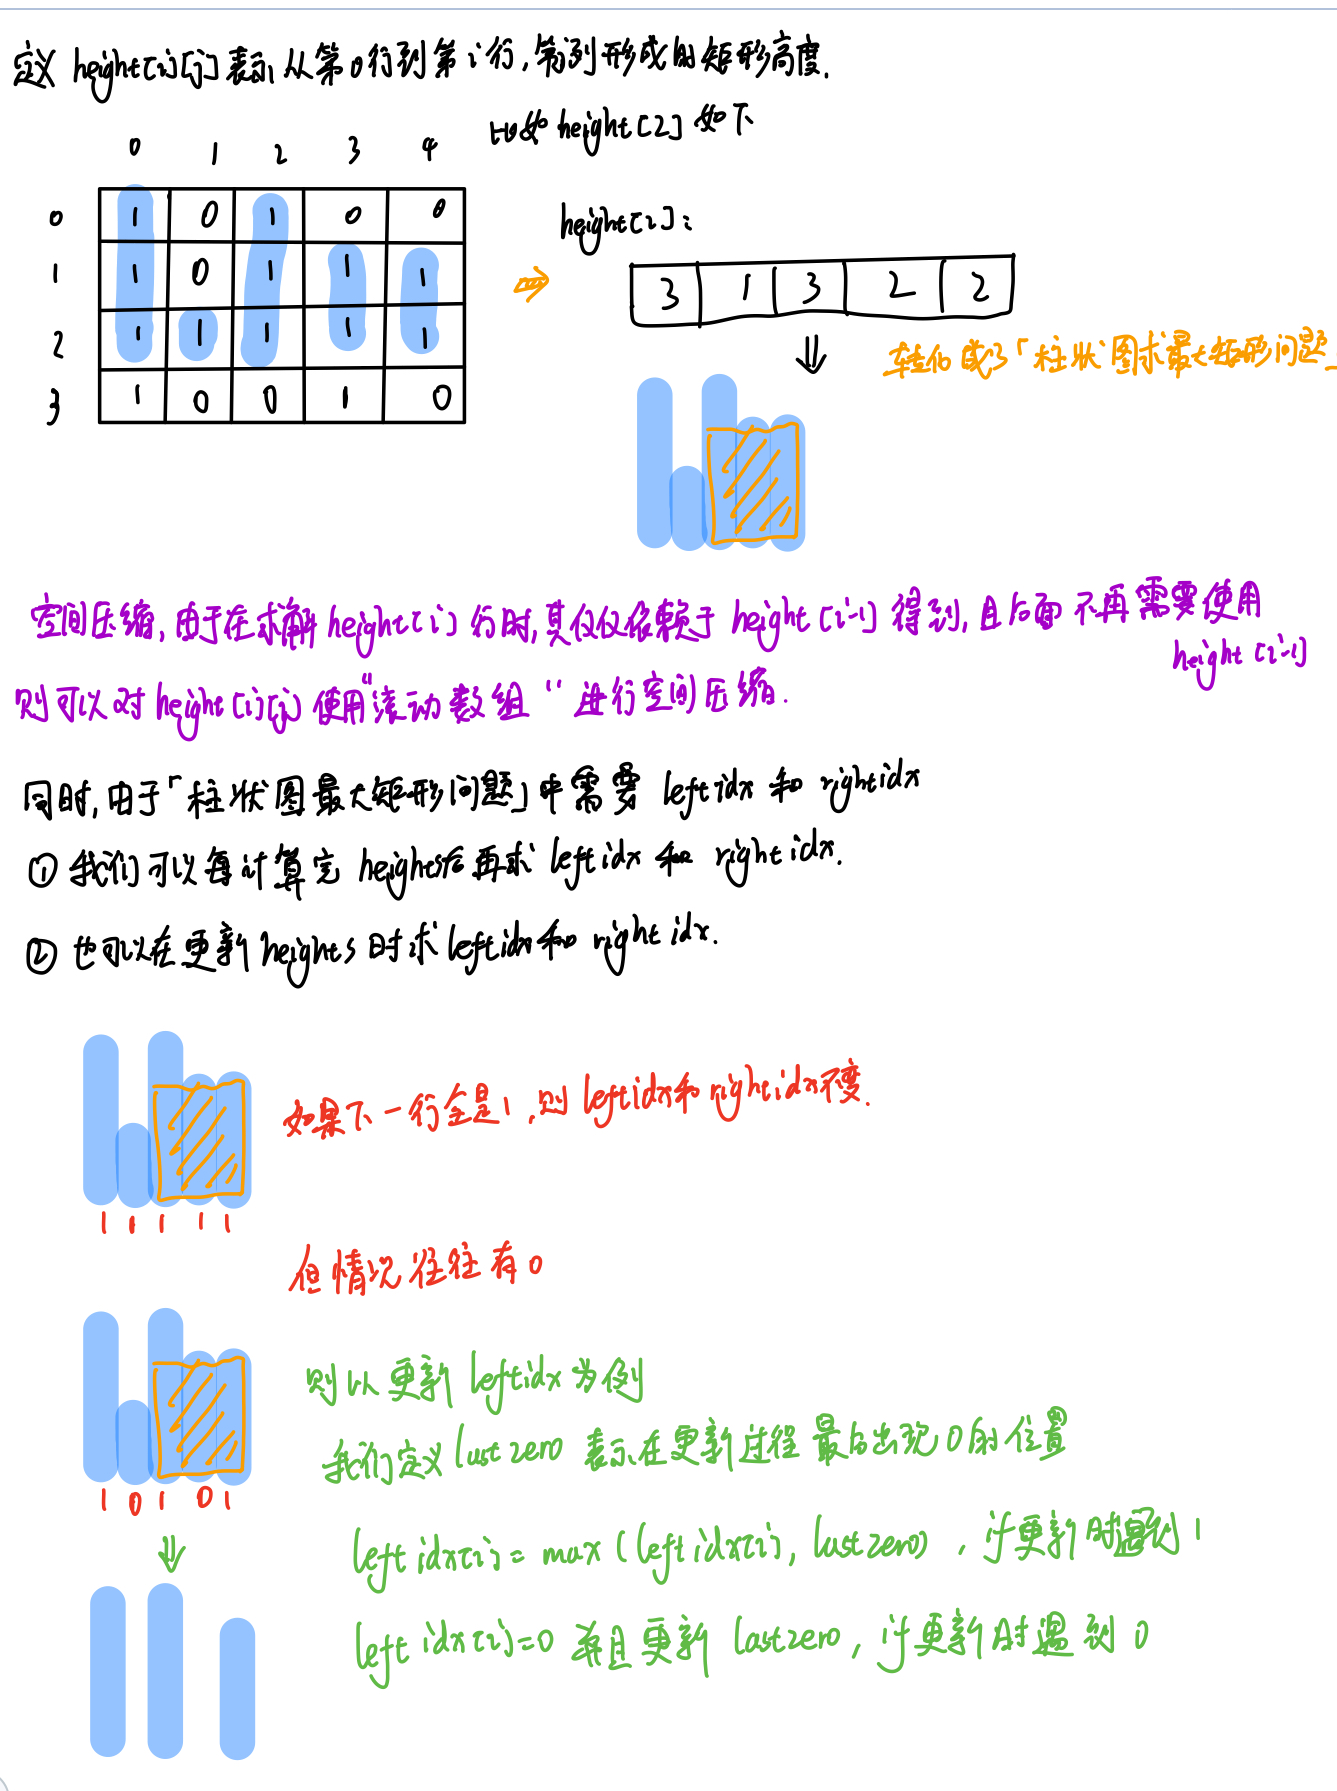 定义 height[i][j] 表示从第0行到第i行,第j列形成的矩形高度.
比如 height[2] 如下
0 1 2 3 4
0 1 0 1 0 0
1 1 0 1 1 1
2 1 1 1 1 1
3 1 0 0 1 0
height[2]:
3 1 3 2 2
转化成了「柱状图求最大矩形问题」
空间压缩,由于在求解 height[i] 行时,其仅仅依赖于 height[i-1] 得到,且后面不再需要使用
height[i-1]
则可以对 height[i][j] 使用“滚动数组“进行空间压缩.
同时,由于「柱状图最大矩形问题」中需要 leftidx 和 rightidx
① 我们可以每计算完 heights后再求 leftidx 和 rightidx.
② 也可以在更新 heights 时求 leftidx和 rightidx.
如果下一行全是1,则 leftidx和 rightidx不变.
1 1 1 1 1
但情况往往有0
则以更新 leftidx 为例
我们定义 lastzero 表示在更新过程最后出现0的位置
1 0 1 0 1
leftidx[i] = max(leftidx[i], lastzero), if更新时遇到1
leftidx[i]=0 并且更新 lastzero, if更新时遇到0